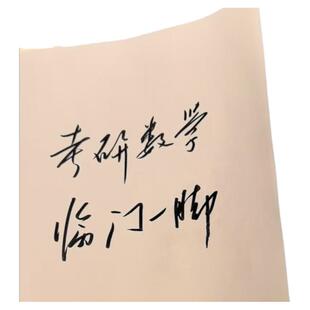 考研数学
临门一脚